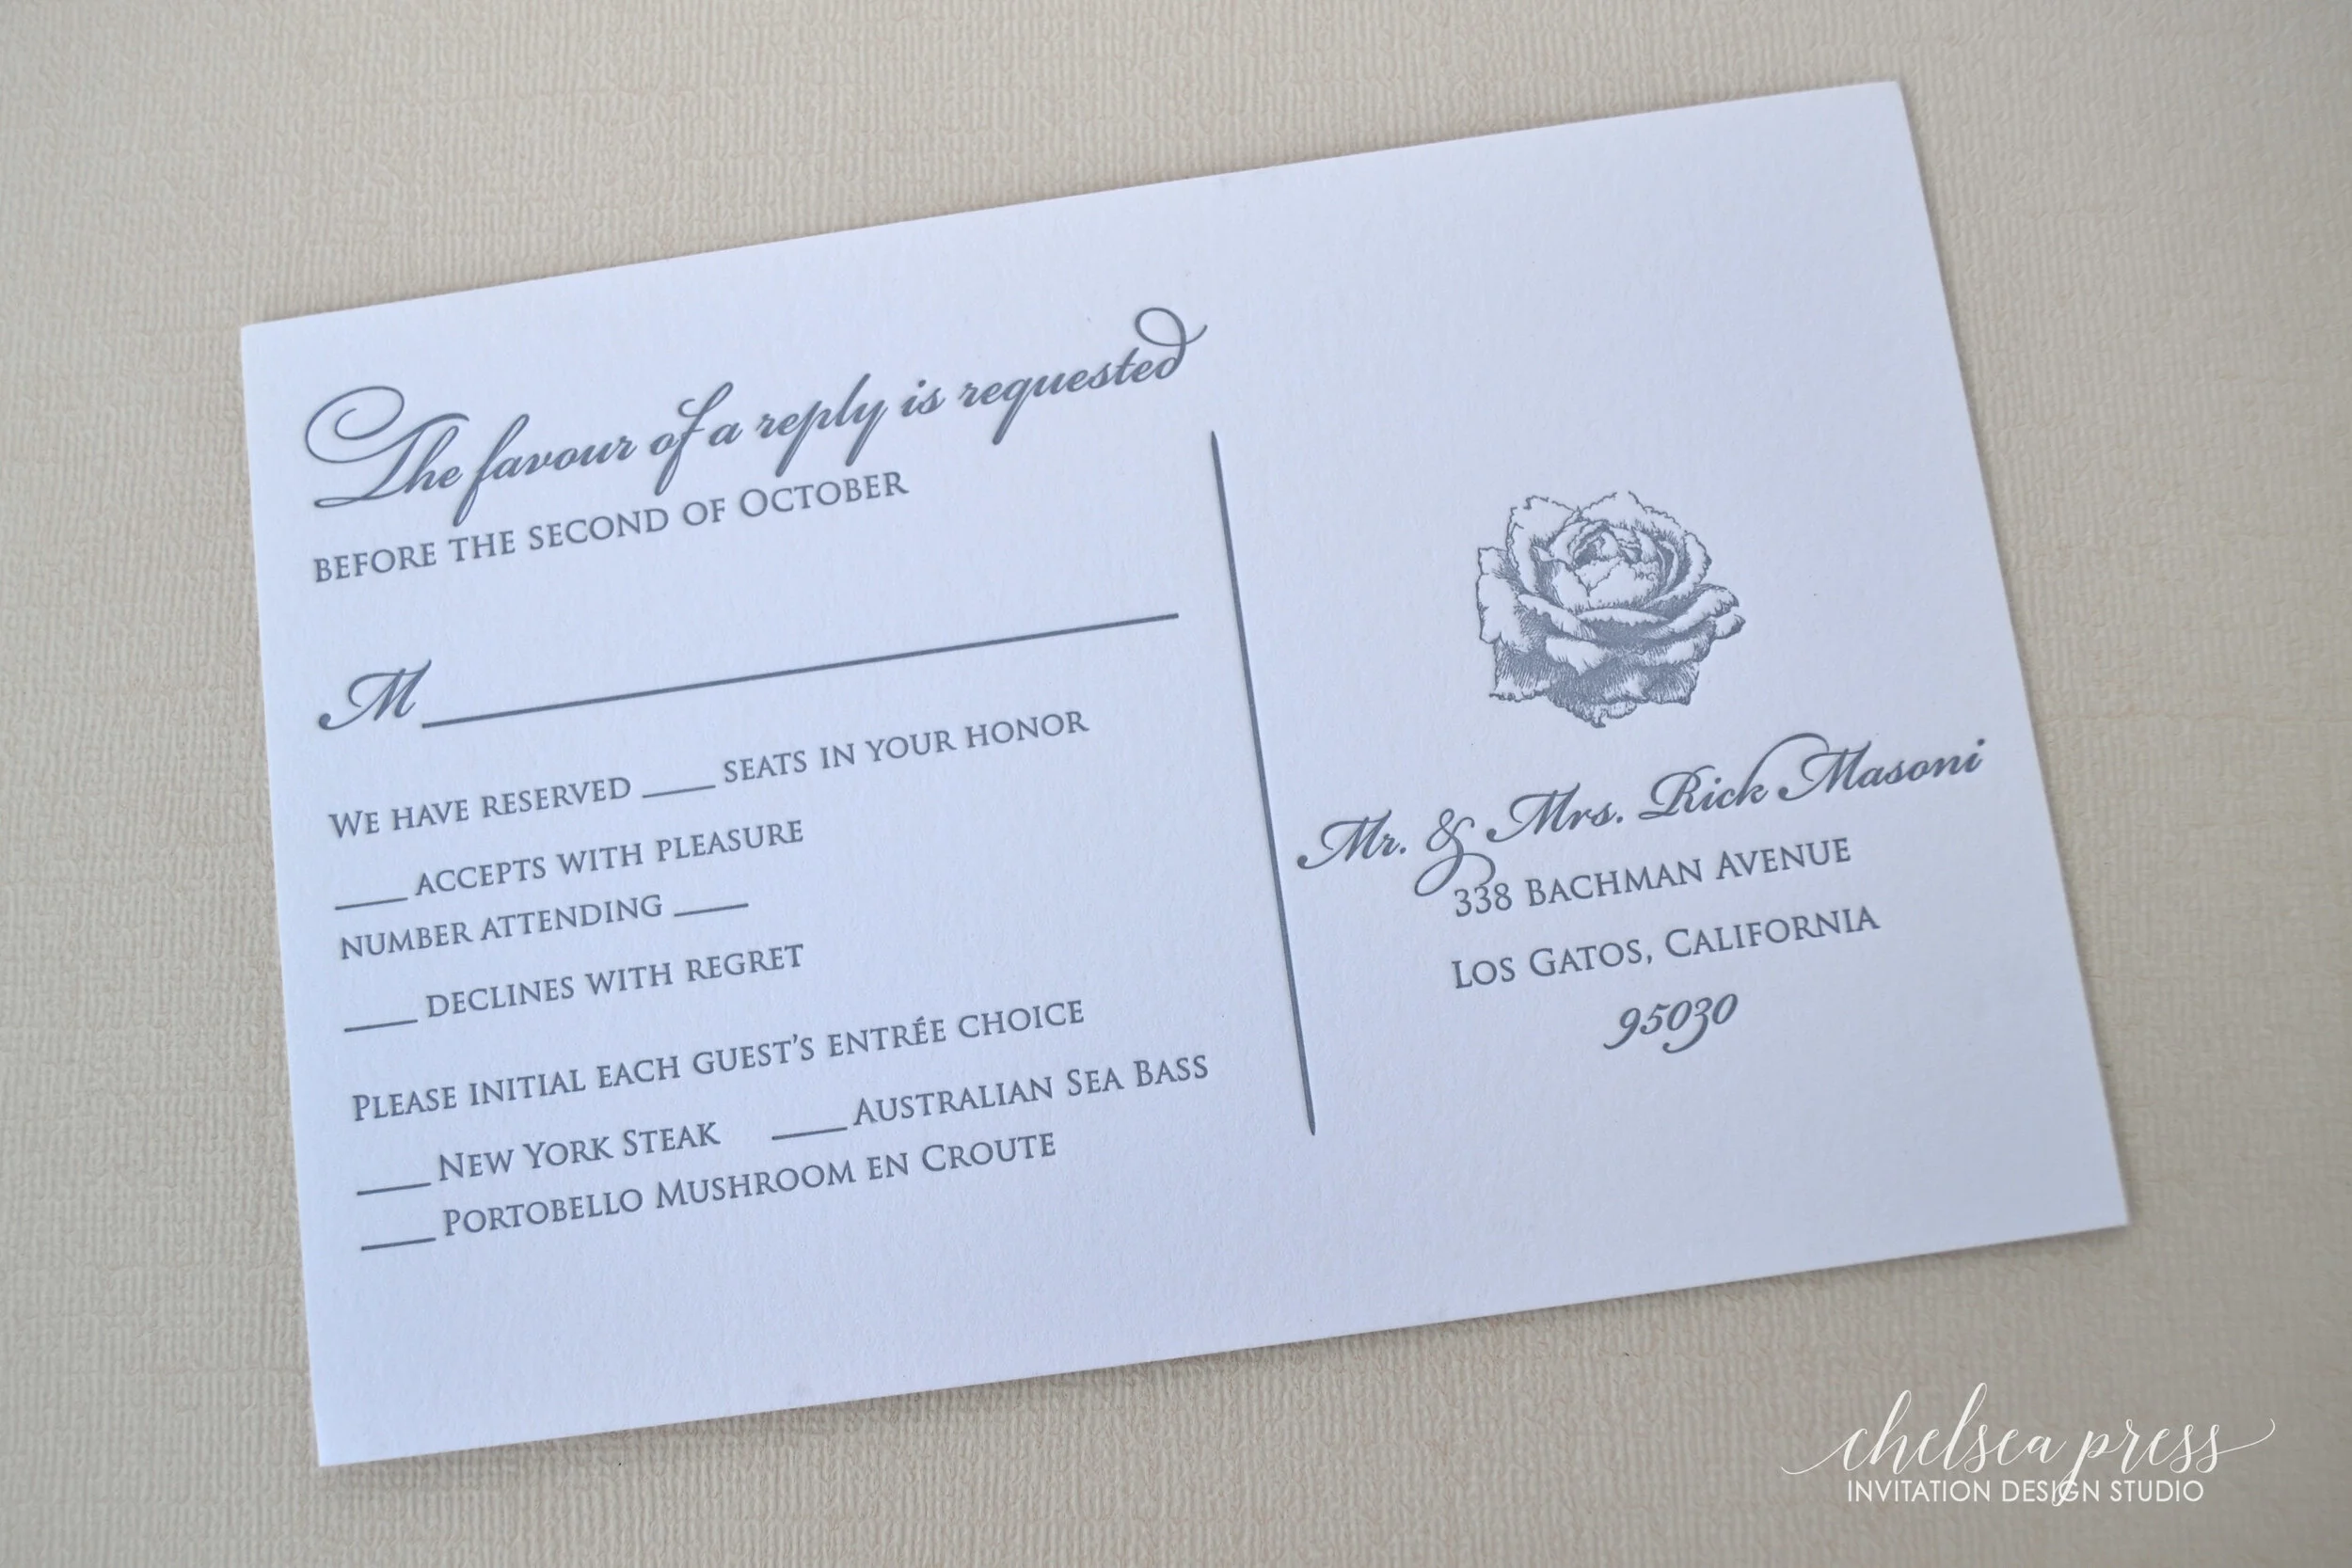 The favour of a reply is requested
BEFORE THE SECOND OF OCTOBER
M____________________
WE HAVE RESERVED ____ SEATS IN YOUR HONOR
____ ACCEPTS WITH PLEASURE
NUMBER ATTENDING ____
____ DECLINES WITH REGRET
PLEASE INITIAL EACH GUEST'S ENTRÉE CHOICE
____ NEW YORK STEAK ____ AUSTRALIAN SEA BASS
____ PORTOBELLO MUSHROOM EN CROUTE
Mr. & Mrs. Rick Masoni
338 BACHMAN AVENUE
LOS GATOS, CALIFORNIA
95030
chelsea press
INVITATION DESIGN STUDIO